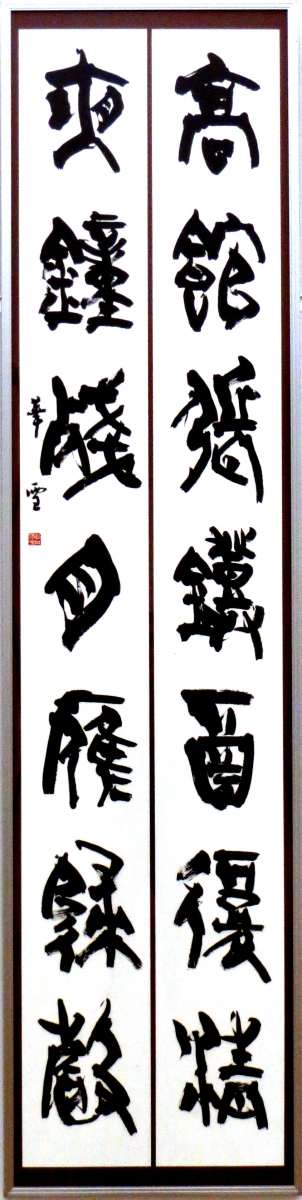 高館張鐙酒復清
夜鐘殘月雁歸聲
華雪